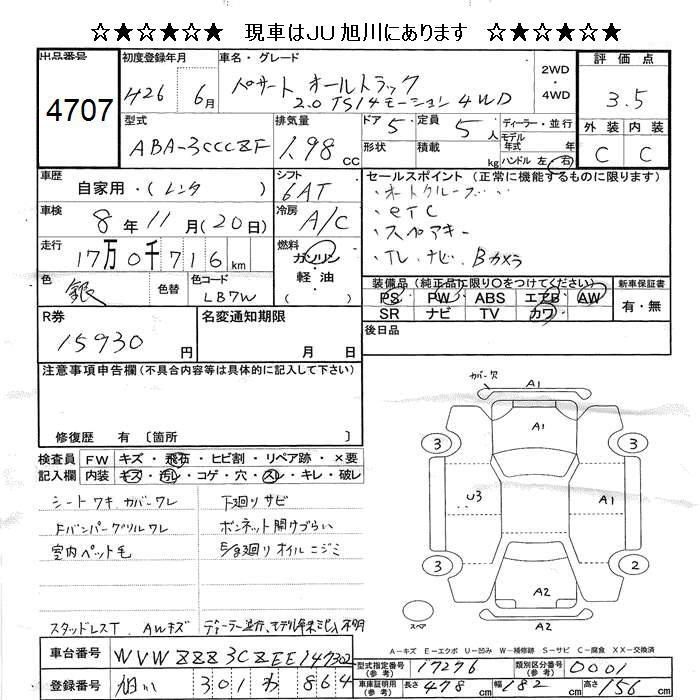 ☆★☆★☆ 現車はJU旭川にあります ☆★☆★☆
出品番号 4707
初度登録年月 H26 6月
車名・グレード パサート オールトラック
2.0 TSI 4モーション 4WD
2WD・4WD
評価点 3.5
外装 C 内装 C
型式 ABA-3CCCZF
排気量 1.98 cc
ドア 5 定員 5人
形状 積載 kg
ディーラー・並行
モデル年式 年式
ハンドル 左・右
車歴 自家用・(レンタ )
シフト 6AT
セールスポイント (正常に機能するものに限ります)
・オートクルーズ
・ETC
・スペアキー
・TV、ナビ、Bカメラ
車検 8年11月(20日)
冷房 A/C
走行 17万0千716km
燃料 ガソリン・軽油・( )
色 銀 色替 色コード LB7W
装備品 (純正品に限り○をつけてください) 新車保証書
PS PW ABS エアB AW 有・無
SR ナビ TV カワ
R券 15930円
名変通知期限 月 日
後日品
注意事項申告欄(不具合内容等は具体的に記入して下さい)
修復歴 有 〔箇所 〕
検査員記入欄 FW キズ・飛石・ヒビ割・リペア跡・×要
内装 キズ・汚レ・コゲ・穴・スレ・キレ・破レ
シートワキ カバーワレ 下廻りサビ
Fバンパーグリルワレ ボンネット開けづらい
室内ペット毛 E/g廻りオイルニジミ
スタッドレスT、AWキズ ディーラー並行、モデル年未記入不明
カバー欠 A1
A1
3 3
U3 A1
3 2
A2
A2
スペア
A-キズ E-エクボ U-凹み W-補修跡 S-サビ C-腐食 XX-交換済
車台番号 WVWZZZ3CZEE147302
登録番号 旭川 301 わ 864
型式指定番号(参考) 17276 類別区分番号(参考) 0001
車庫証明用(参考) 長さ 478cm 幅 182cm 高さ 156cm